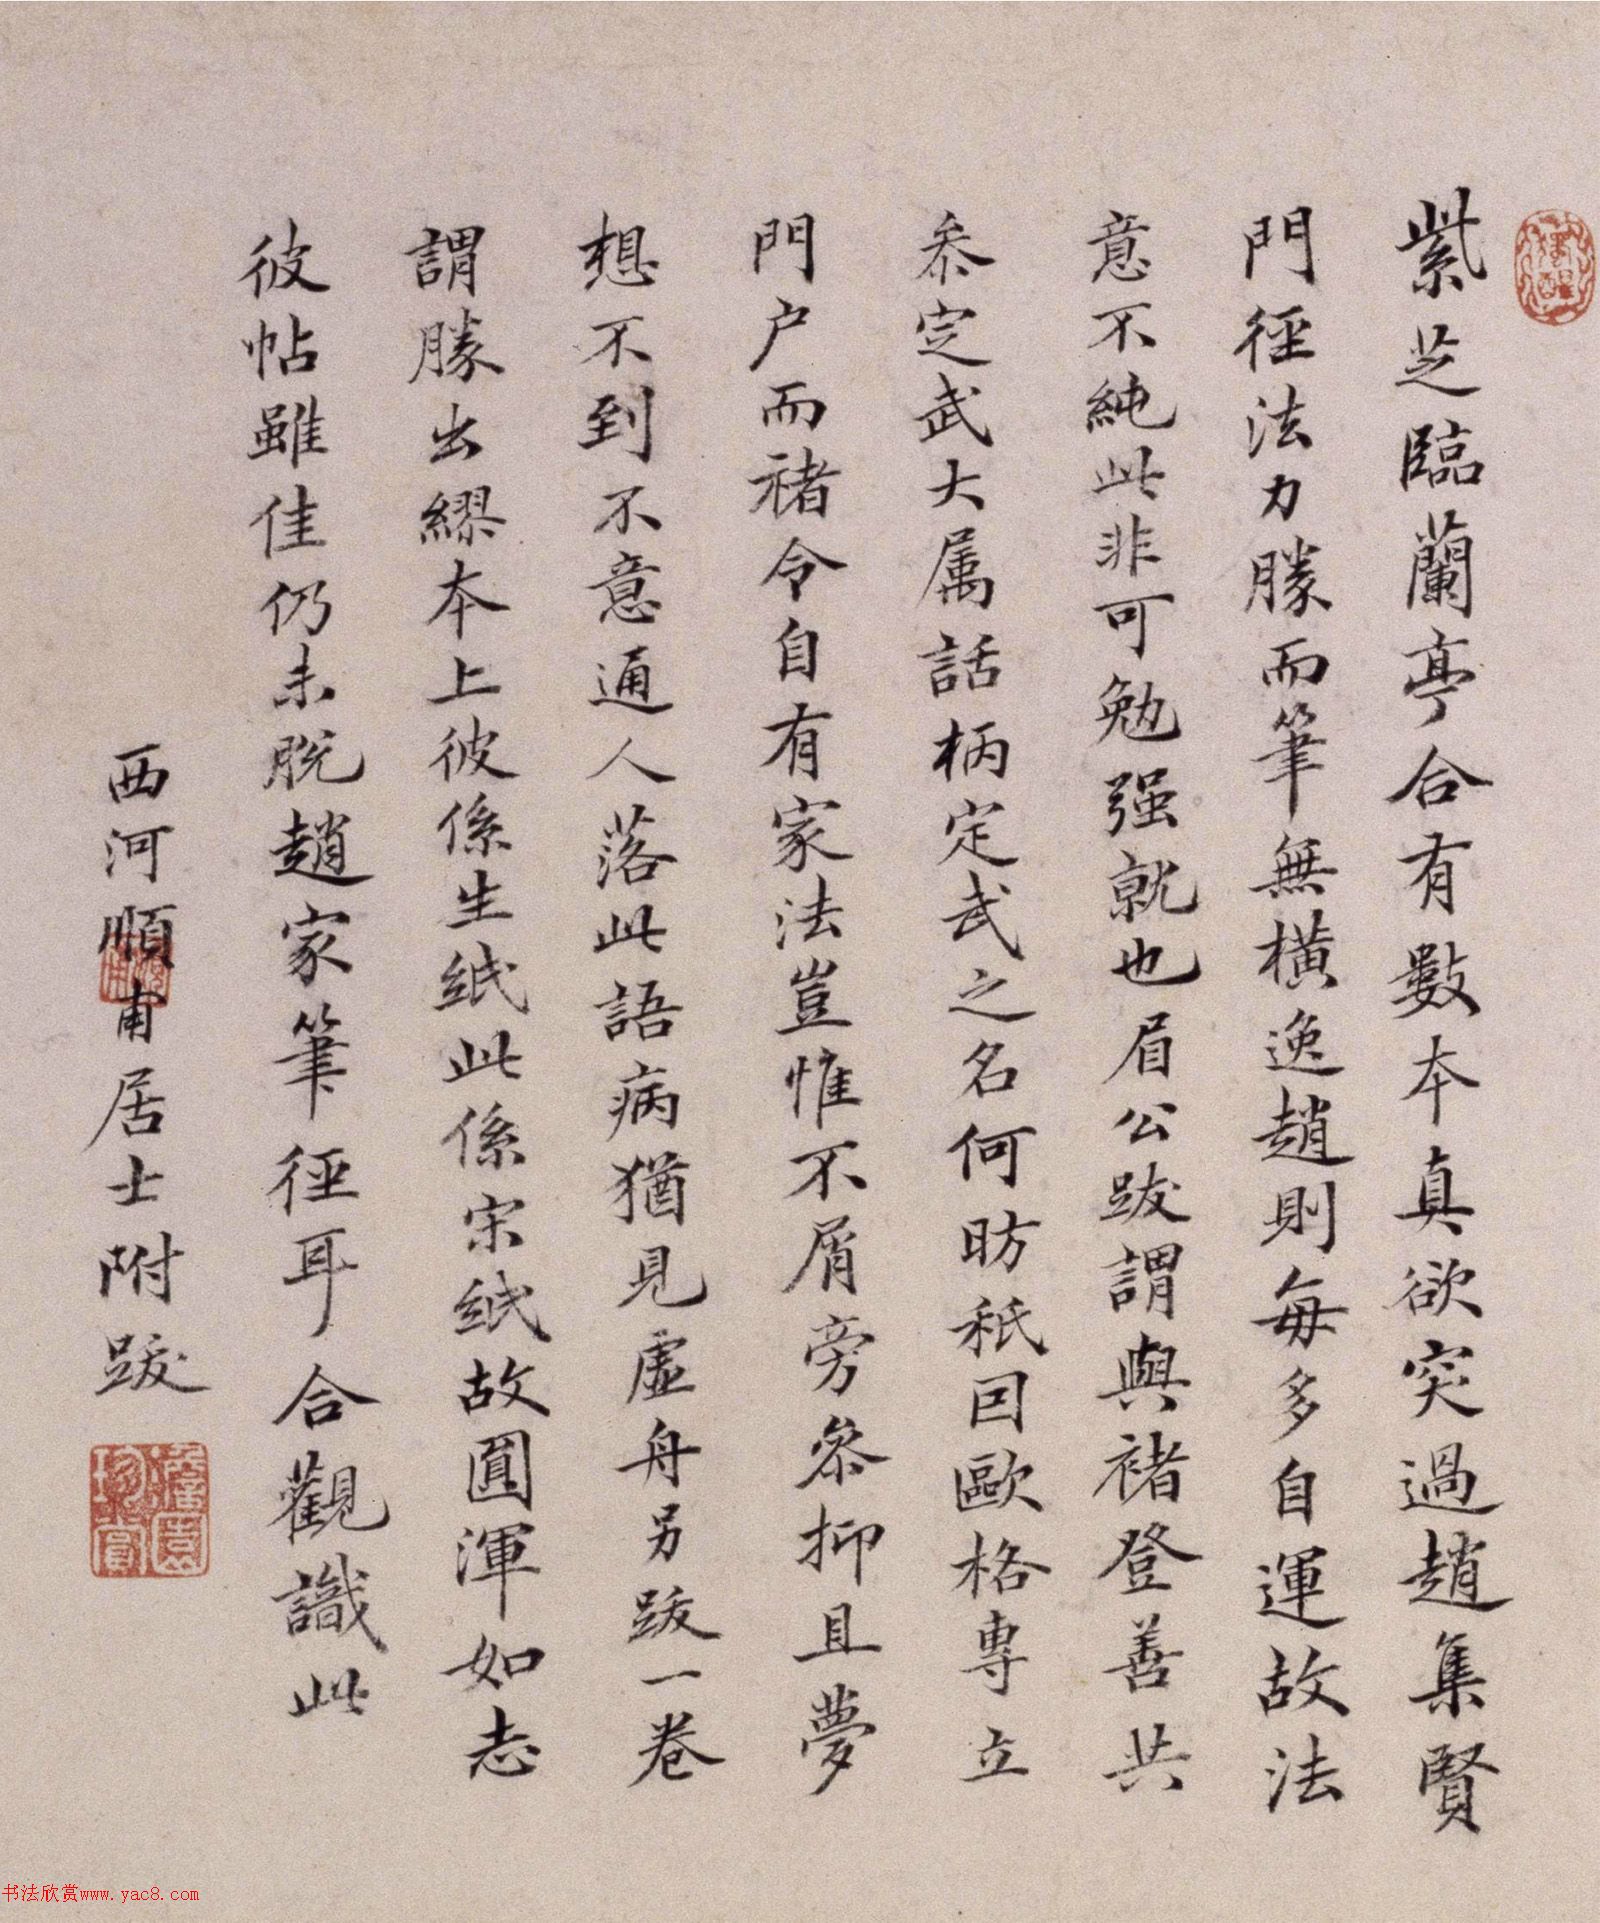 紫芝臨蘭亭合有數本真欲突過趙集賢
門徑法力勝而筆無橫逸趙則每多自運故法
意不純此非可勉强就也眉公跋謂與褚登善共
叅定武大属話柄定武之名何昉秖因歐格專立
門户而褚令自有家法豈惟不屑旁叅抑且夢
想不到不意通人落此語病猶見虛舟另跋一卷
謂勝出繆本上彼係生紙此係宋紙故圓渾如志
彼帖雖佳仍未脫趙家筆徑耳合觀識此
西河順甫居士附跋
书法欣赏www.yac8.com